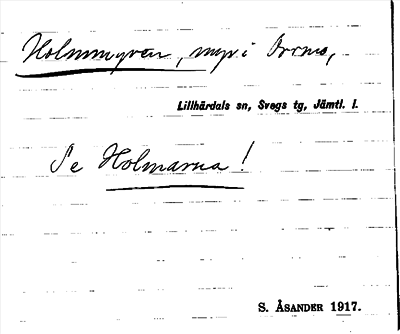 Holmmyren, myr i Orrmo,
Lillhärdals sn, Svegs tg, Jämtl. l.
Se Holmarna!
S. ÅSANDER 1917.